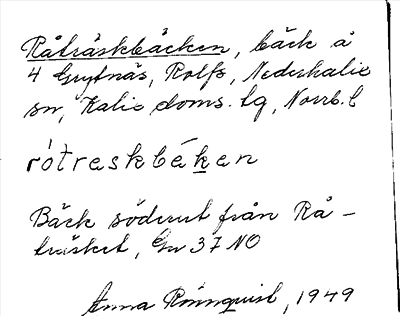 Råträskbäcken, bäck å
4 Grytnäs, Rolfs, Nederkalix
sn, Kalix doms. lg, Norrb. l
rótreskbéken
Bäck söderut från Rå-
träsket, Gr 37 NO
Anna Rönnquist, 1949